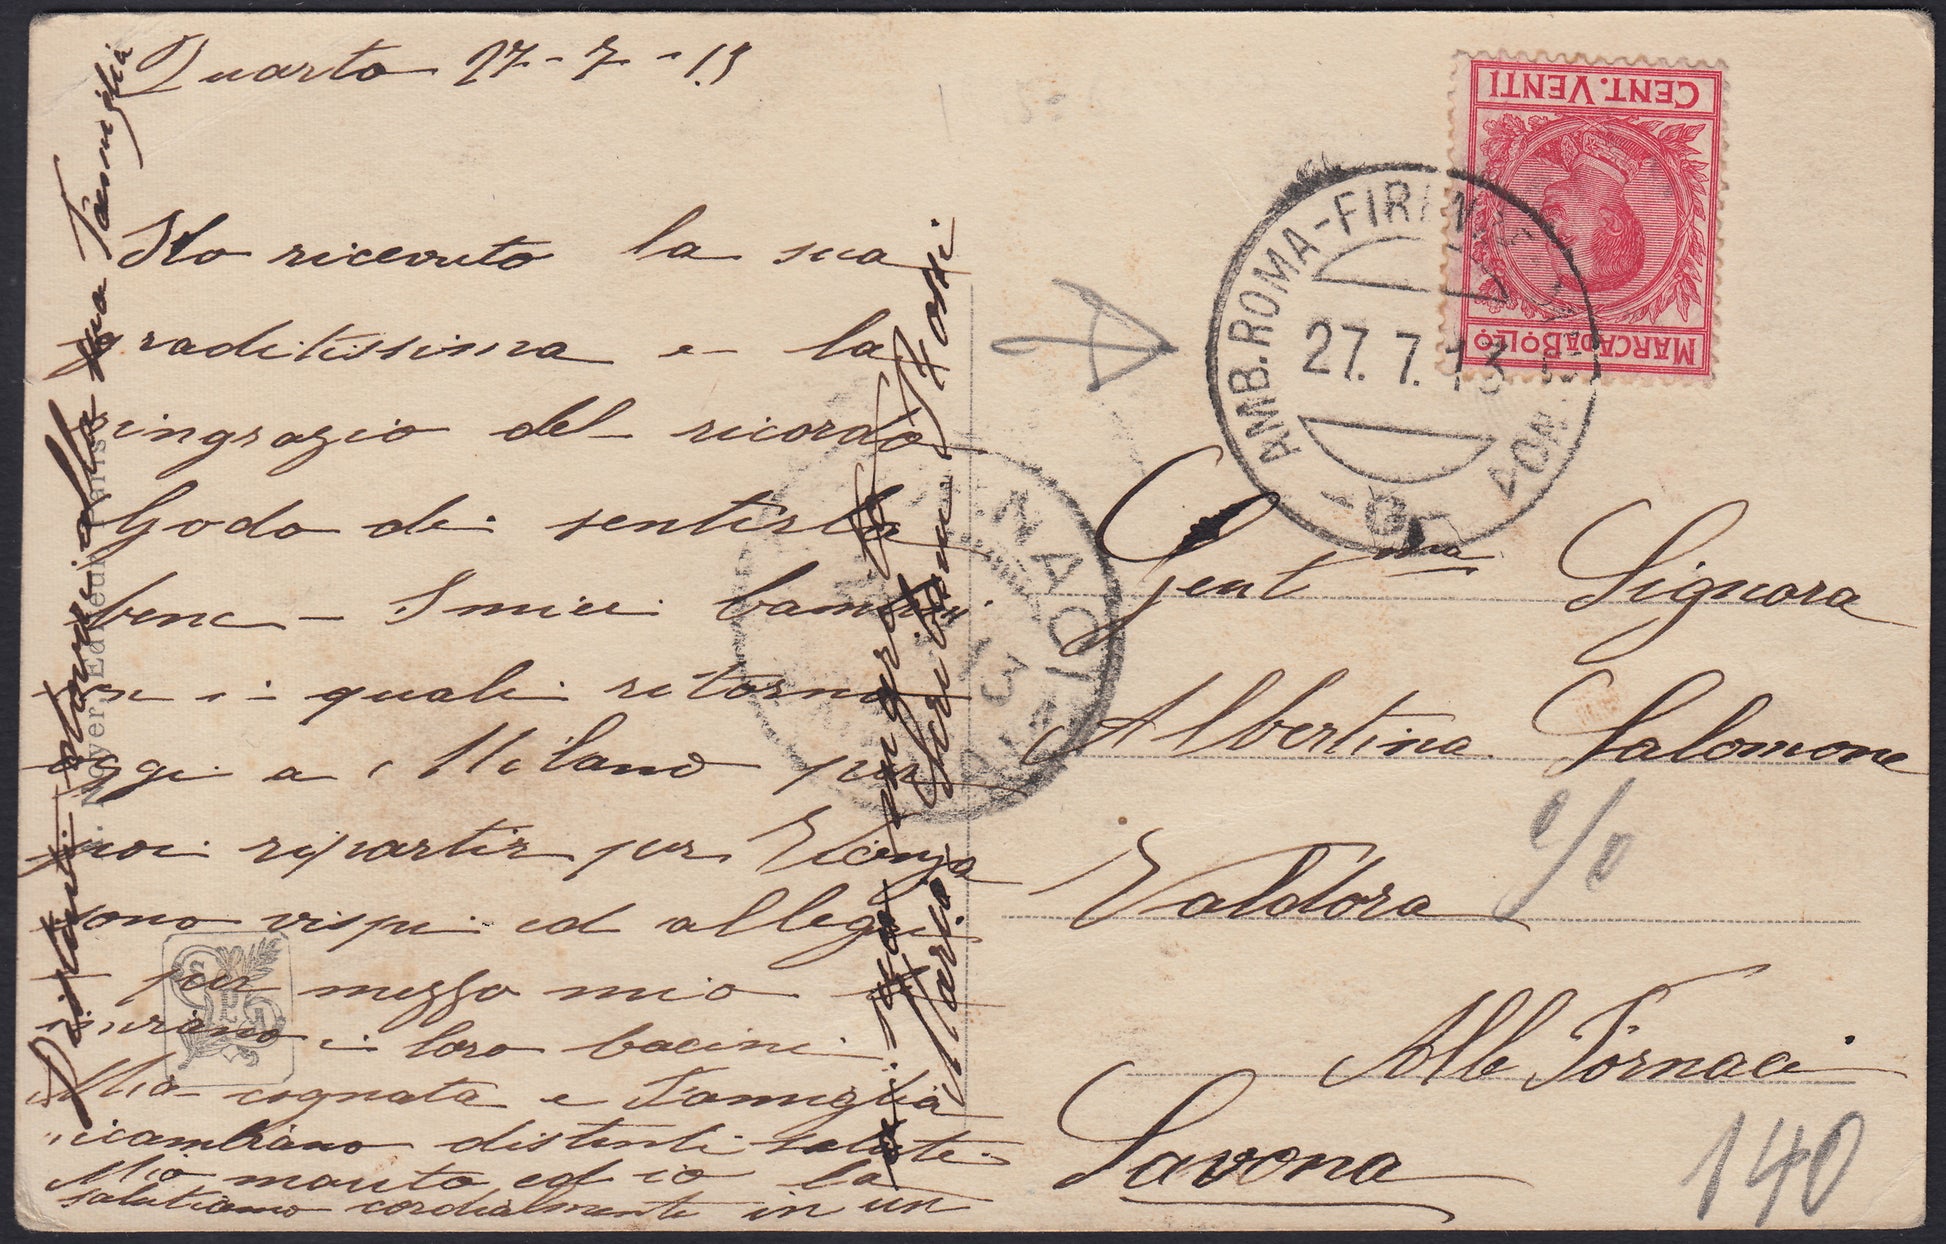 Quarto 27-7-13
Ho ricevuto la sua
graditissima e la
ringrazio del ricordo
Godo di sentirla
bene - I miei bambini
i quali ritorna
oggi a Milano per
poi ripartir per Vicenza
sono vispi ed allegri
per mezzo mio
inviano i loro bacini
Mia cognata e Famiglia
ricambiano distinti saluti
Mio marito ed io la
salutiamo cordialmente in un
Distinti ossequi alla sua Famiglia
Maria
CENT. VENTI
MARCA DA BOLLO
AMB. ROMA-FIRENZE
27.7.13
13
Gent ma Signora
Albertina Salomone
Valdora
c/o
Alb Fornaci
Savona
140